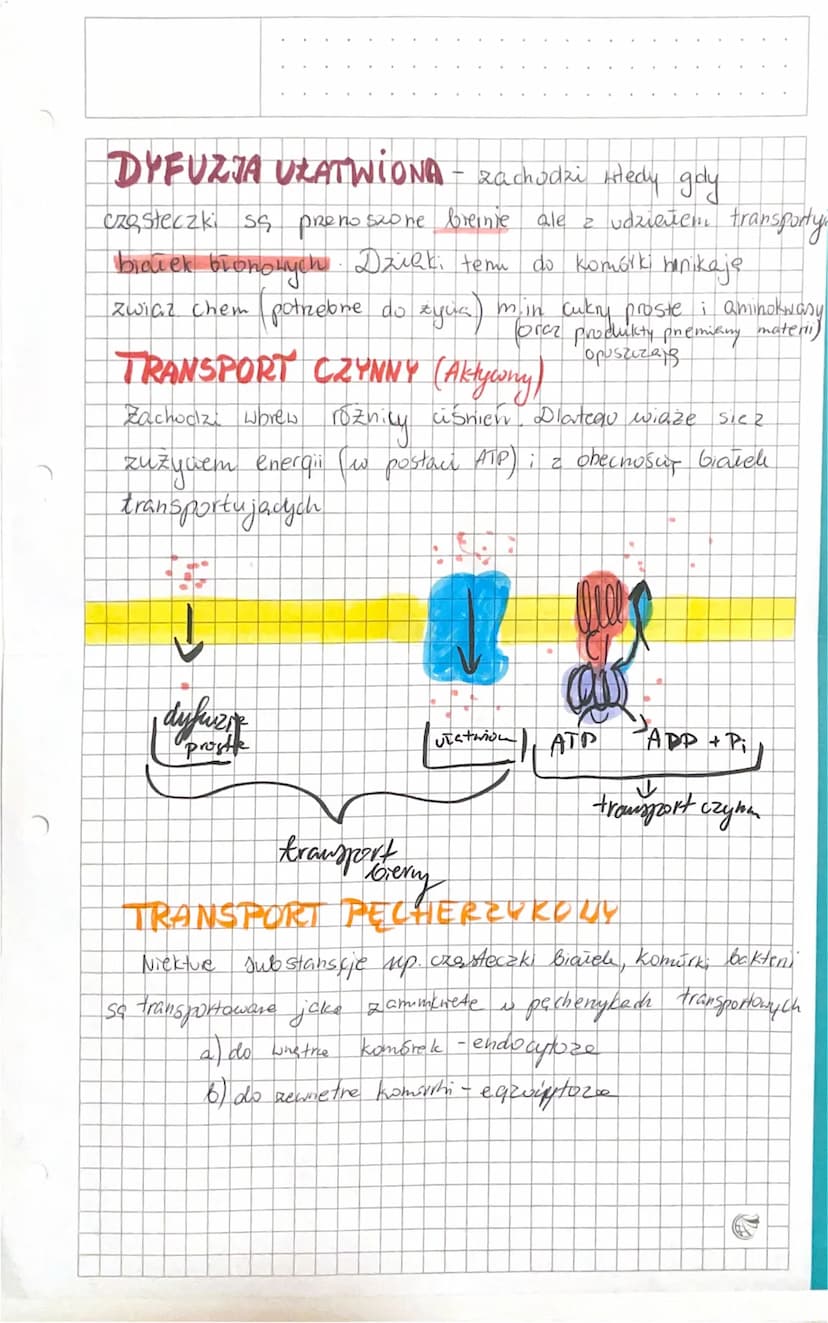 DYFUZJA UŁATWIONA - zachodzi wtedy gdy
cząsteczki są przenoszone biernie ale z udziałem transporty
białek błonowych. Dzięki temu do komórki wnikają
związ chem (potrzebne do życia) m.in cukry proste i aminokwasy
(oraz produkty przemiany materii)
opuszczają
TRANSPORT CZYNNY (Aktywny)
Zachodzi wbrew różnicy ciśnień. Dlatego wiąże się z
zużyciem energii (w postaci ATP) i z obecnością białek
transportujących
dyfuzje
proste
ułatwion
ATP
ADP + Pi
transport czynn
transport
bierny
TRANSPORT PĘCHERZYKOWY
Niektóre substanscje np. cząsteczki białek, komórki bakterii
są transportowane jako zammknięte w pęcherzykach transportowych
a) do wnętrze komórek - endocytoza
b) do zewnętrz komórki -